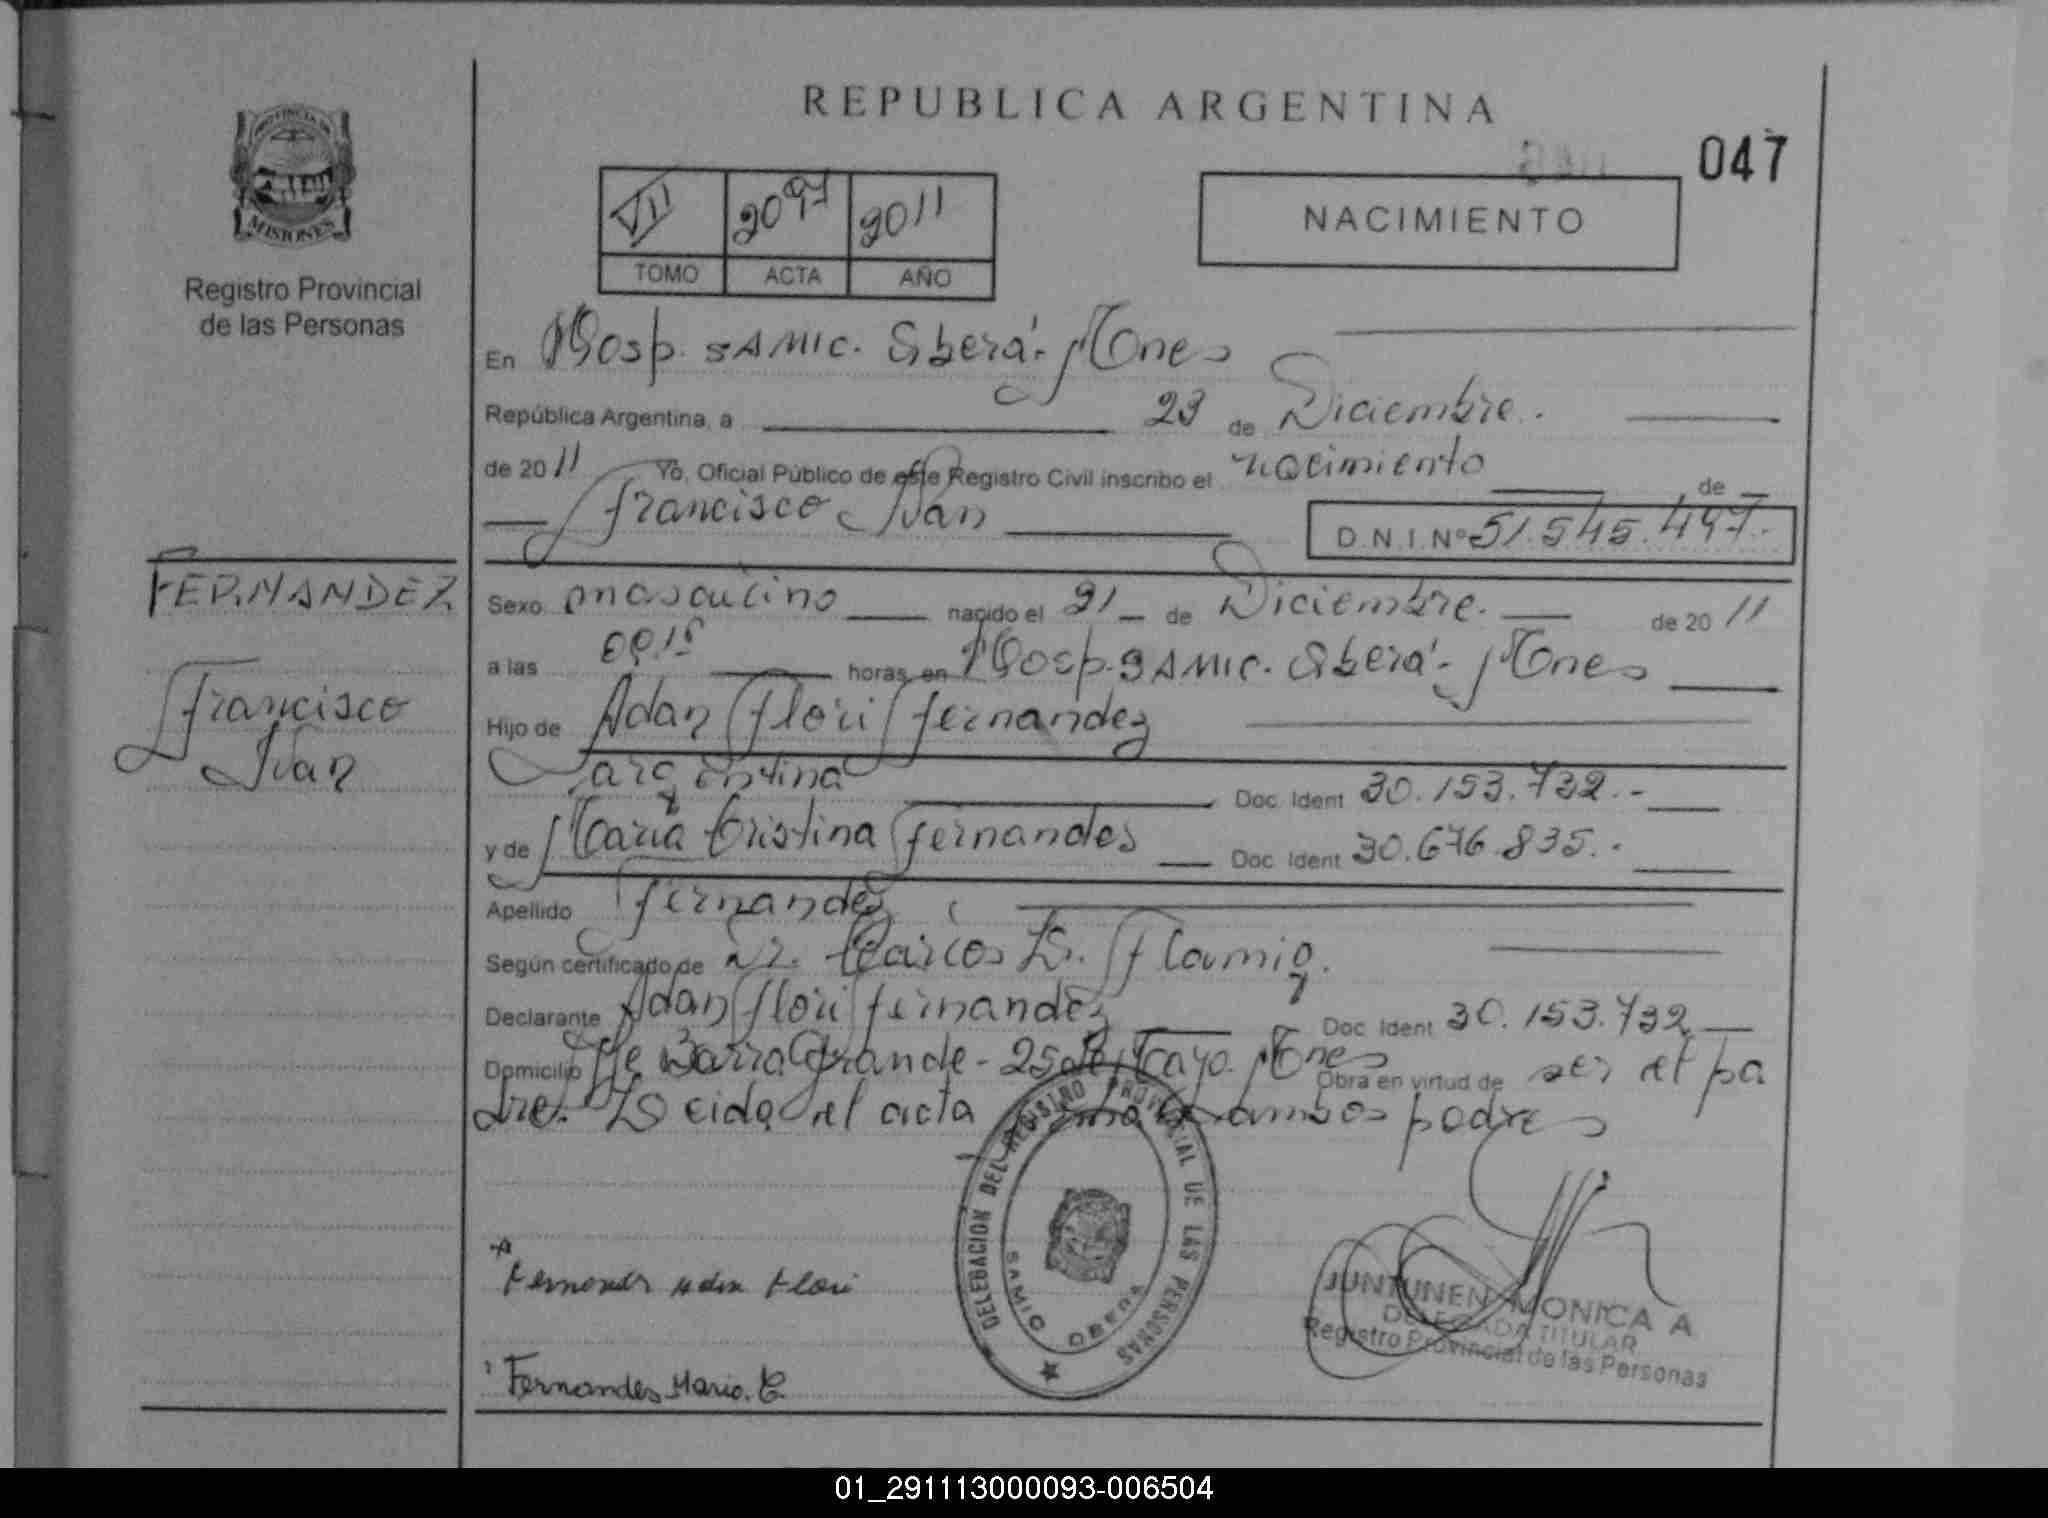 REPUBLICA ARGENTINA
047
PROVINCIA DE
MISIONES
Registro Provincial
de las Personas
VII 2097 2011
TOMO ACTA AÑO
NACIMIENTO
En Hosp. SAMIC. Oberá - Mnes
República Argentina, a 23 de Diciembre.
de 2011 Yo, Oficial Público de este Registro Civil inscribo el nacimiento de
Francisco Ivan D.N.I.Nº 51.545.497.-
FERNANDEZ
Francisco
Ivan
Sexo masculino nacido el 21 de Diciembre. de 2011
a las 00,15 horas, en Hosp. SAMIC. Oberá - Mnes
Hijo de Adan Flori Fernandez
argentina Doc. Ident 30.153.732.-
y de Maria Cristina Fernandes Doc. Ident 30.676.835.-
Apellido Fernandez
Según certificado de Dr. Carlos D. Flamig.
Declarante Adan Flori Fernandez Doc. Ident 30.153.732
Domicilio Barra Grande - 25 de Mayo. Mnes Obra en virtud de ser el pa
dre. Leida el acta ambos padres
DELEGACION DEL REGISTRO PROVINCIAL DE LAS PERSONAS
SAMIC OBERA
Fernandez Adan Flori
Fernandes Maria. C
JUNTUNEN MONICA A
DELEGADA TITULAR
Registro Provincial de las Personas
01_291113000093-006504